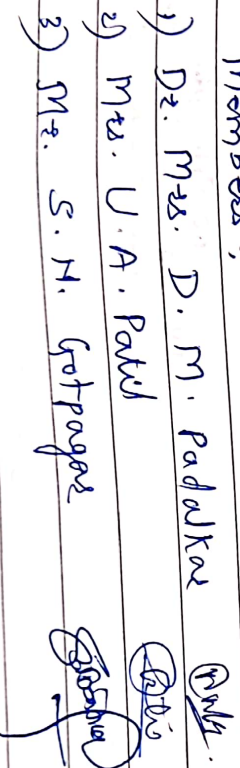 Members,
1) Dr. Mrs. D. M. Padalkar
2) Mrs. U. A. Patil
3) Mr. S. N. Gotpagar